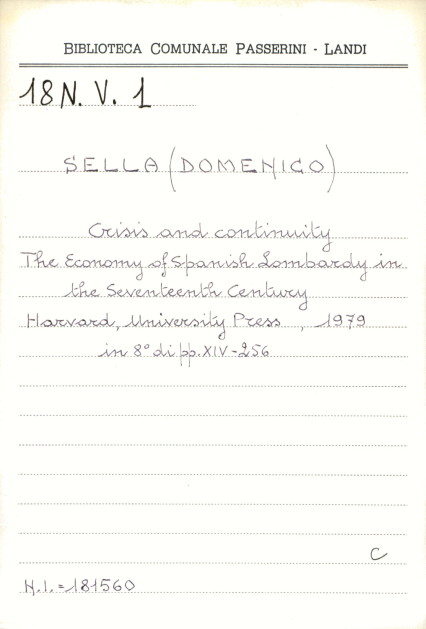 BIBLIOTECA COMUNALE PASSERINI - LANDI
18 N. V. 1
SELLA (DOMENICO)
Crisis and continuity
The Economy of Spanish Lombardy in
the Seventeenth Century
Harvard, University Press, 1979
in 8° di pp. XIV-256
C
N.I. = 181560